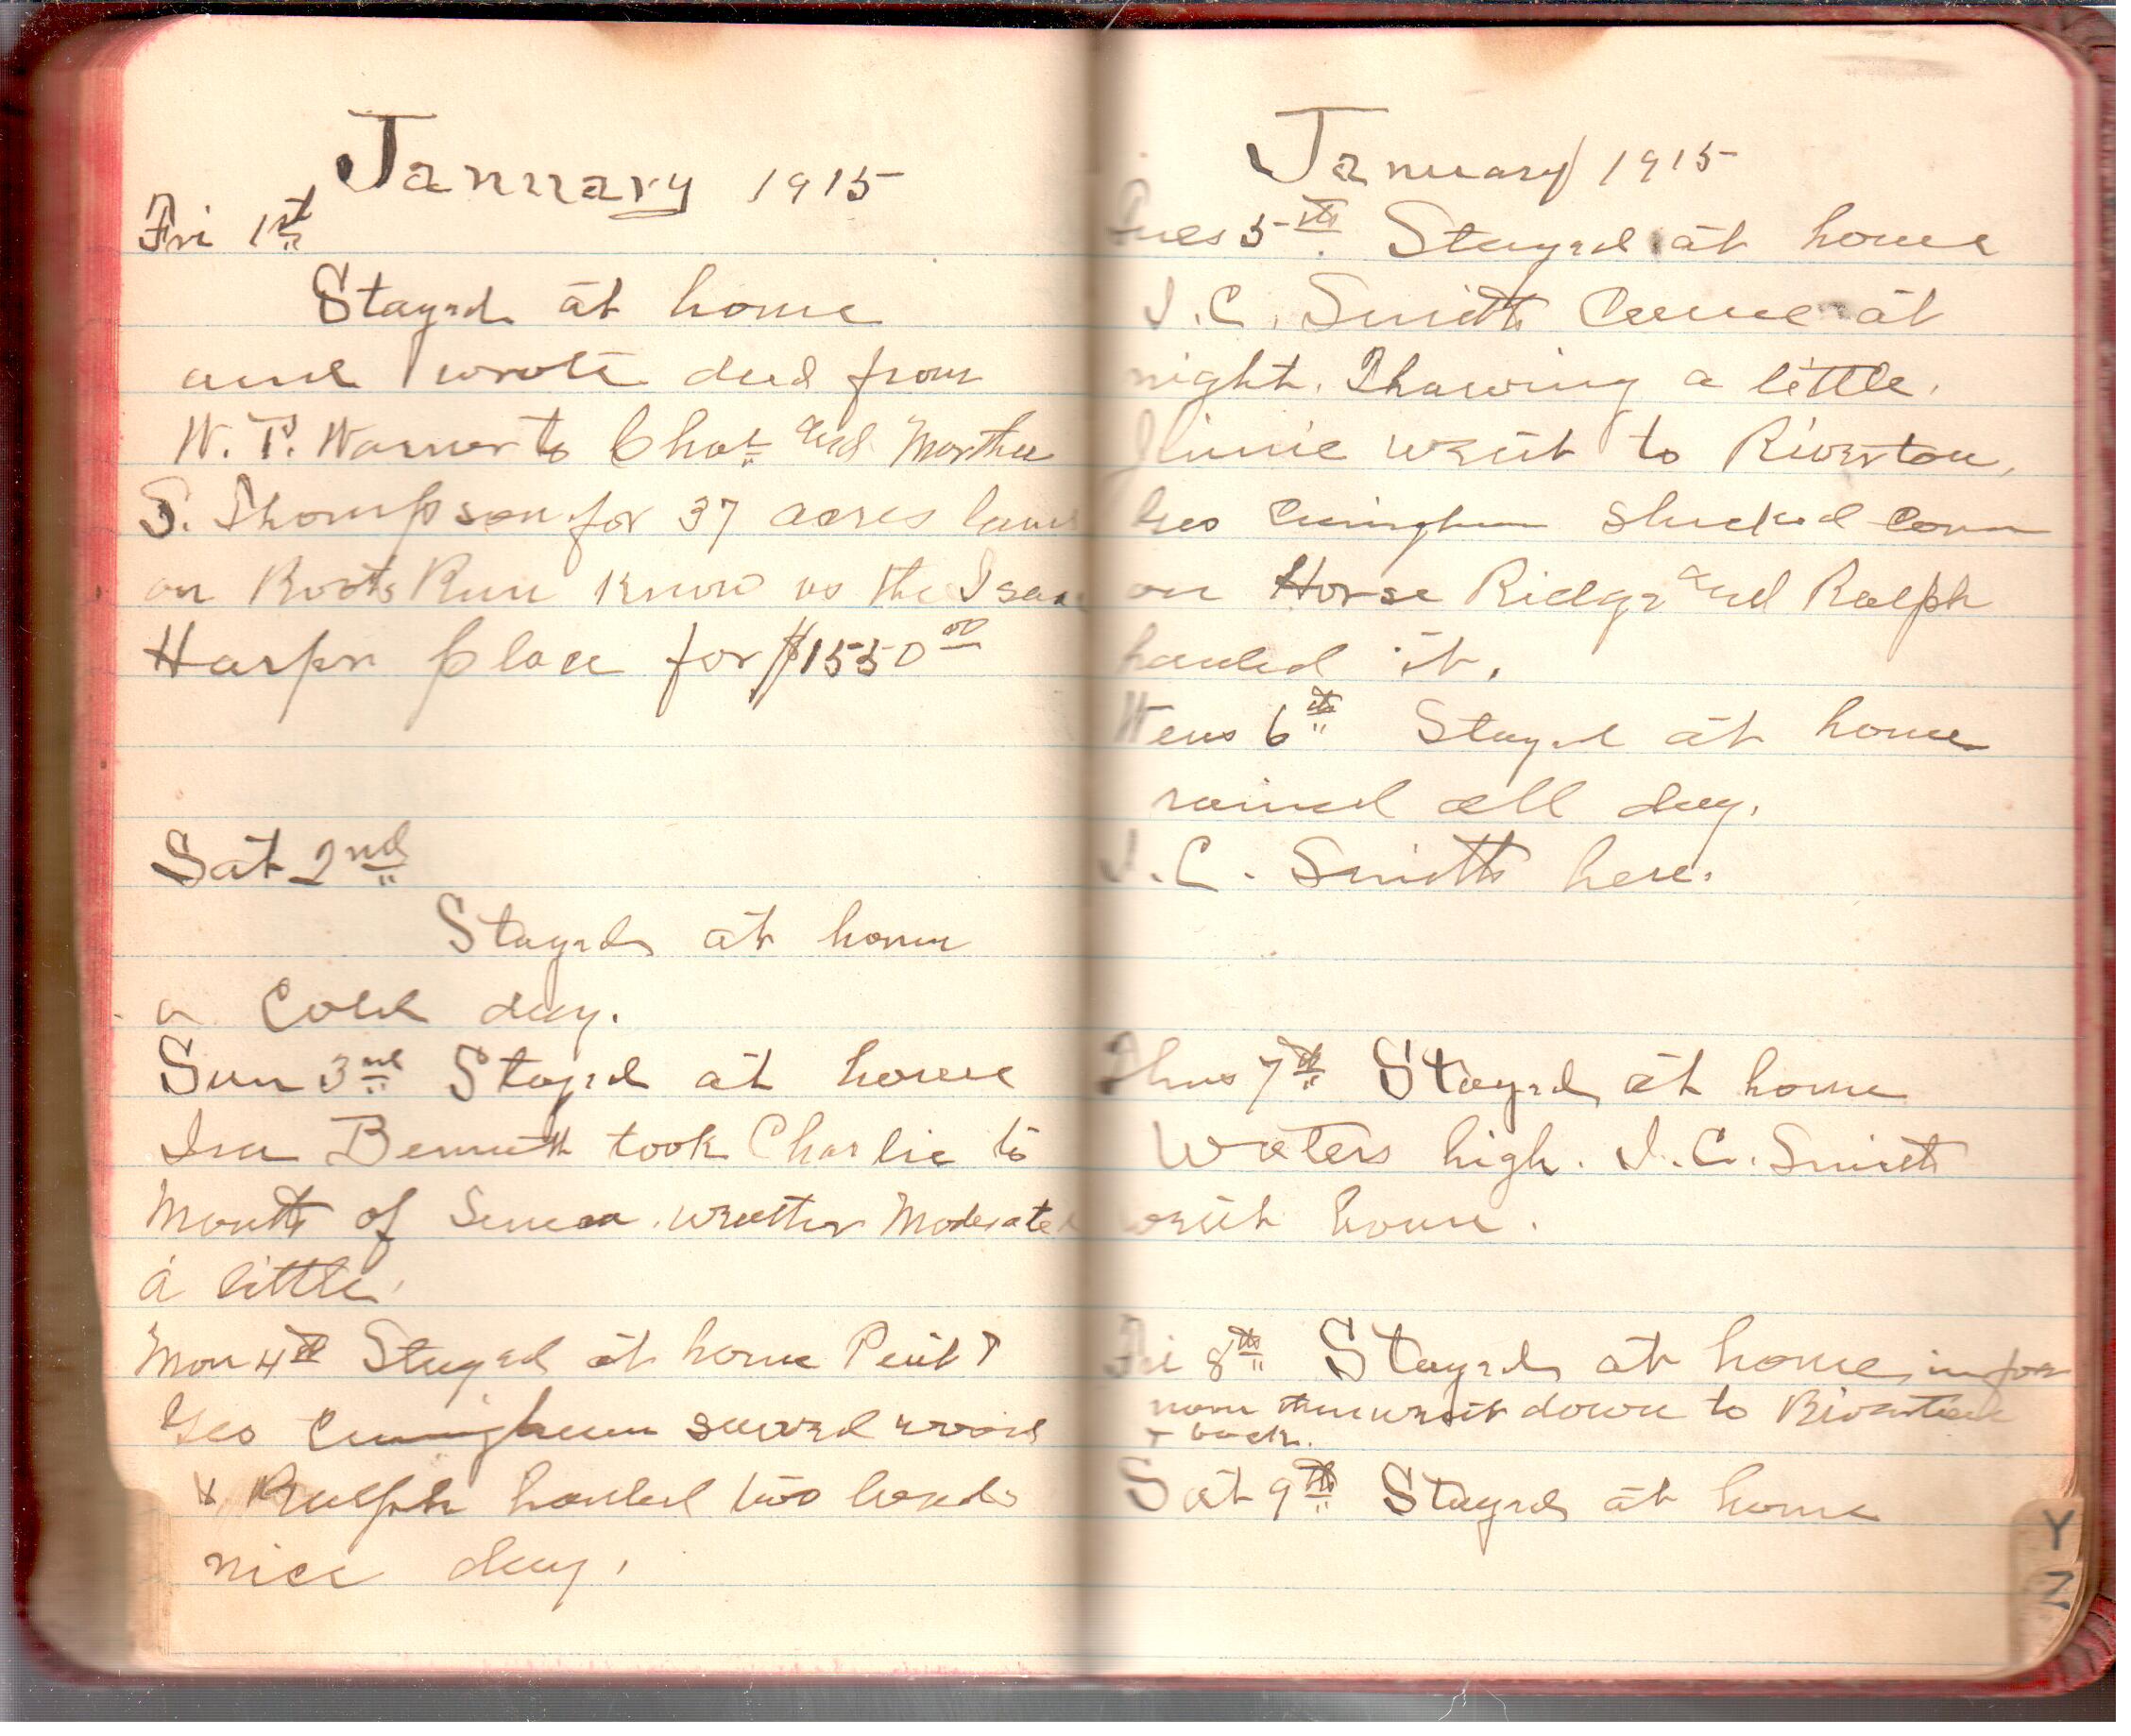 January 1915
Fri 1st
Stayed at home
and wrote deed from
W. T. Warner to Chas and Martha
S. Thompson for 37 acres land
on Roots Run know as the Isaac
Harper place for $1550 00
Sat 2nd
Stayed at home
a Cold day.
Sun 3rd Stayed at home
Ira Bennett took Charlie to
Mouth of Seneca. weather Moderated
a little.
Mon 4th Stayed at home
Geo Cuningham sawed wood
& Ralph hauled two loads
nice day.
January 1915
Tues 5th. Stayed at home
I. C. Smith Came at
night. Thawing a little.
went to Riverton,
Geo Cuningham shucked corn
on Horse Ridge and Ralph
hauled it.
Wens 6th Stayed at home
rained all day.
I. C. Smith here.
Thus 7th Stayed at home
Waters high. I. C. Smith
went home.
Fri 8th Stayed at home in for
noon then went down to Riverton
+ back.
Sat 9th Stayed at home
Y
Z